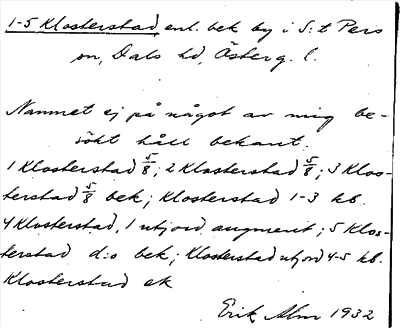 1-5 Klosterstad enl. bek by i S:t Pers
sn, Dals hd, Österg. l.
Namnet ej på något av mig be-
sökt håll bekant.
1 Klosterstad 5/8; 2 Klosterstad 5/8; 3 Klos-
terstad 5/8 bek; Klosterstad 1-3 kb.
4 Klosterstad, 1 utjord, augment; 5 Klos-
terstad d:o bek; Klosterstad utjord 4-5 kb.
Klosterstad ek
Erik Alm 1932